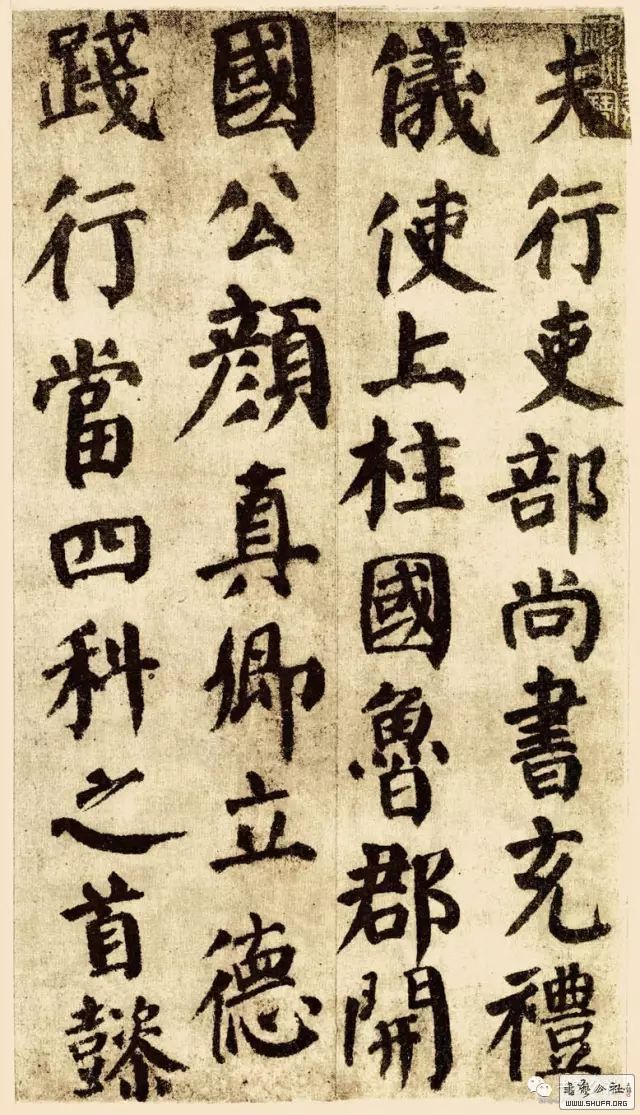 夫行吏部尚書充禮
儀使上柱國魯郡開
國公顏真卿立德
踐行當四科之首懿
書藝公社
WWW.SHUFA.ORG